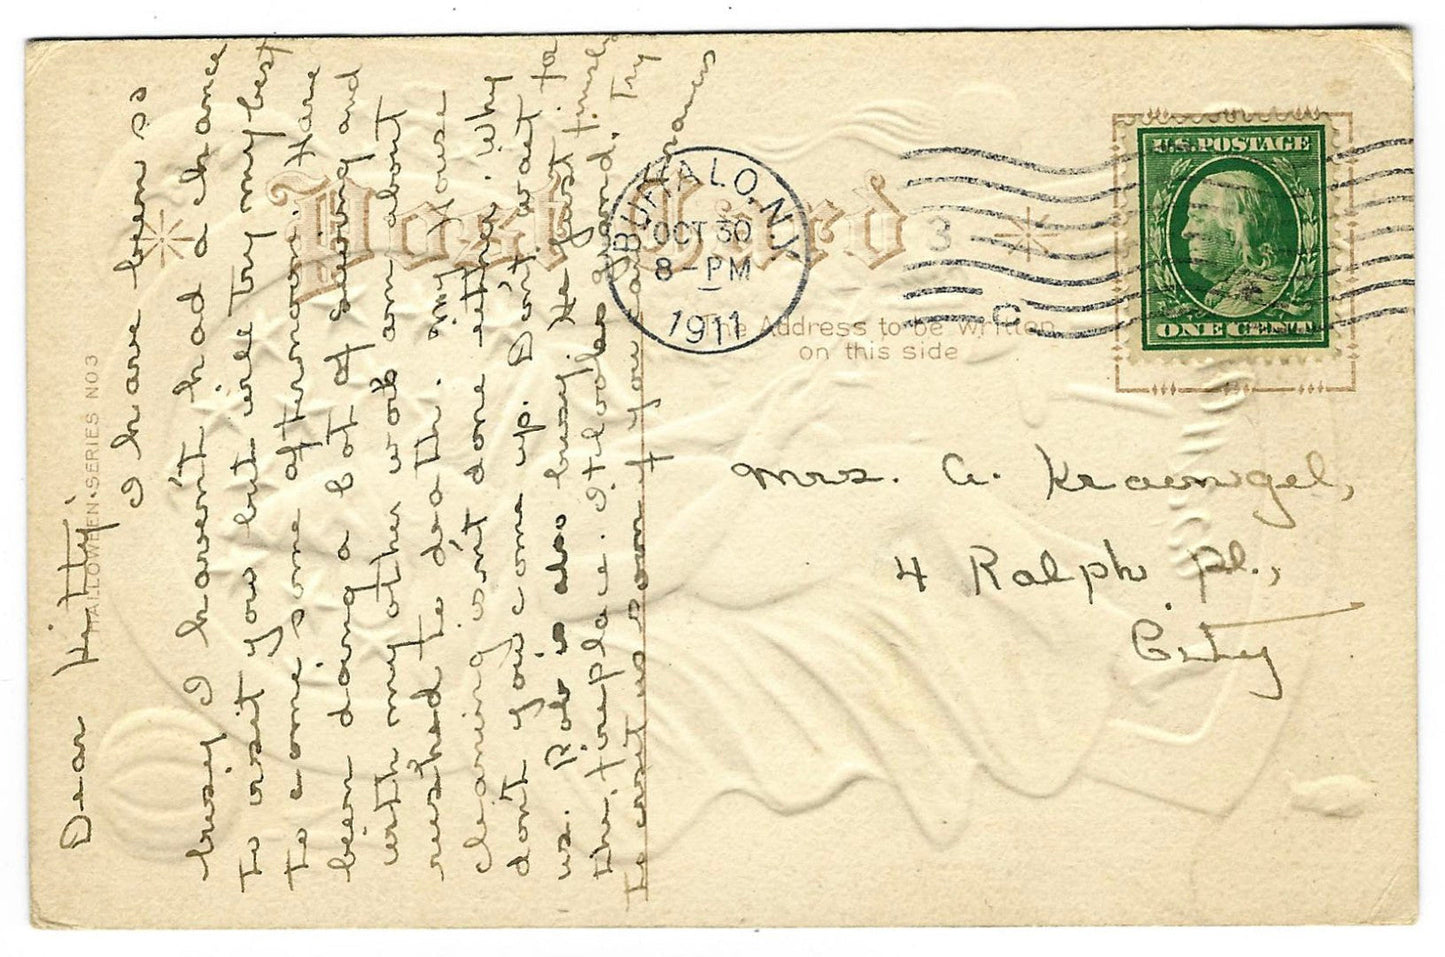 Dear Kitty:
I have been so
busy I haven't had a chance
to visit you but will try my best
to come some afternoon. Have
been doing a lot of sewing and
with my other work am about
rushed to death. My house
cleaning isn't done either. Why
don't you come up. Don't wait for
us. Rob is also busy. He just finished
the fireplace. It looks grand. Try
to visit us soon if you can.
Frances
HALLOWEEN SERIES NO 3
Post Card
The Address to be written
on this side
BUFFALO, N.Y.
OCT 30
8-PM
1911
3
C
U.S. POSTAGE
ONE CENT
Mrs. A. Kraengel,
4 Ralph Pl.,
City